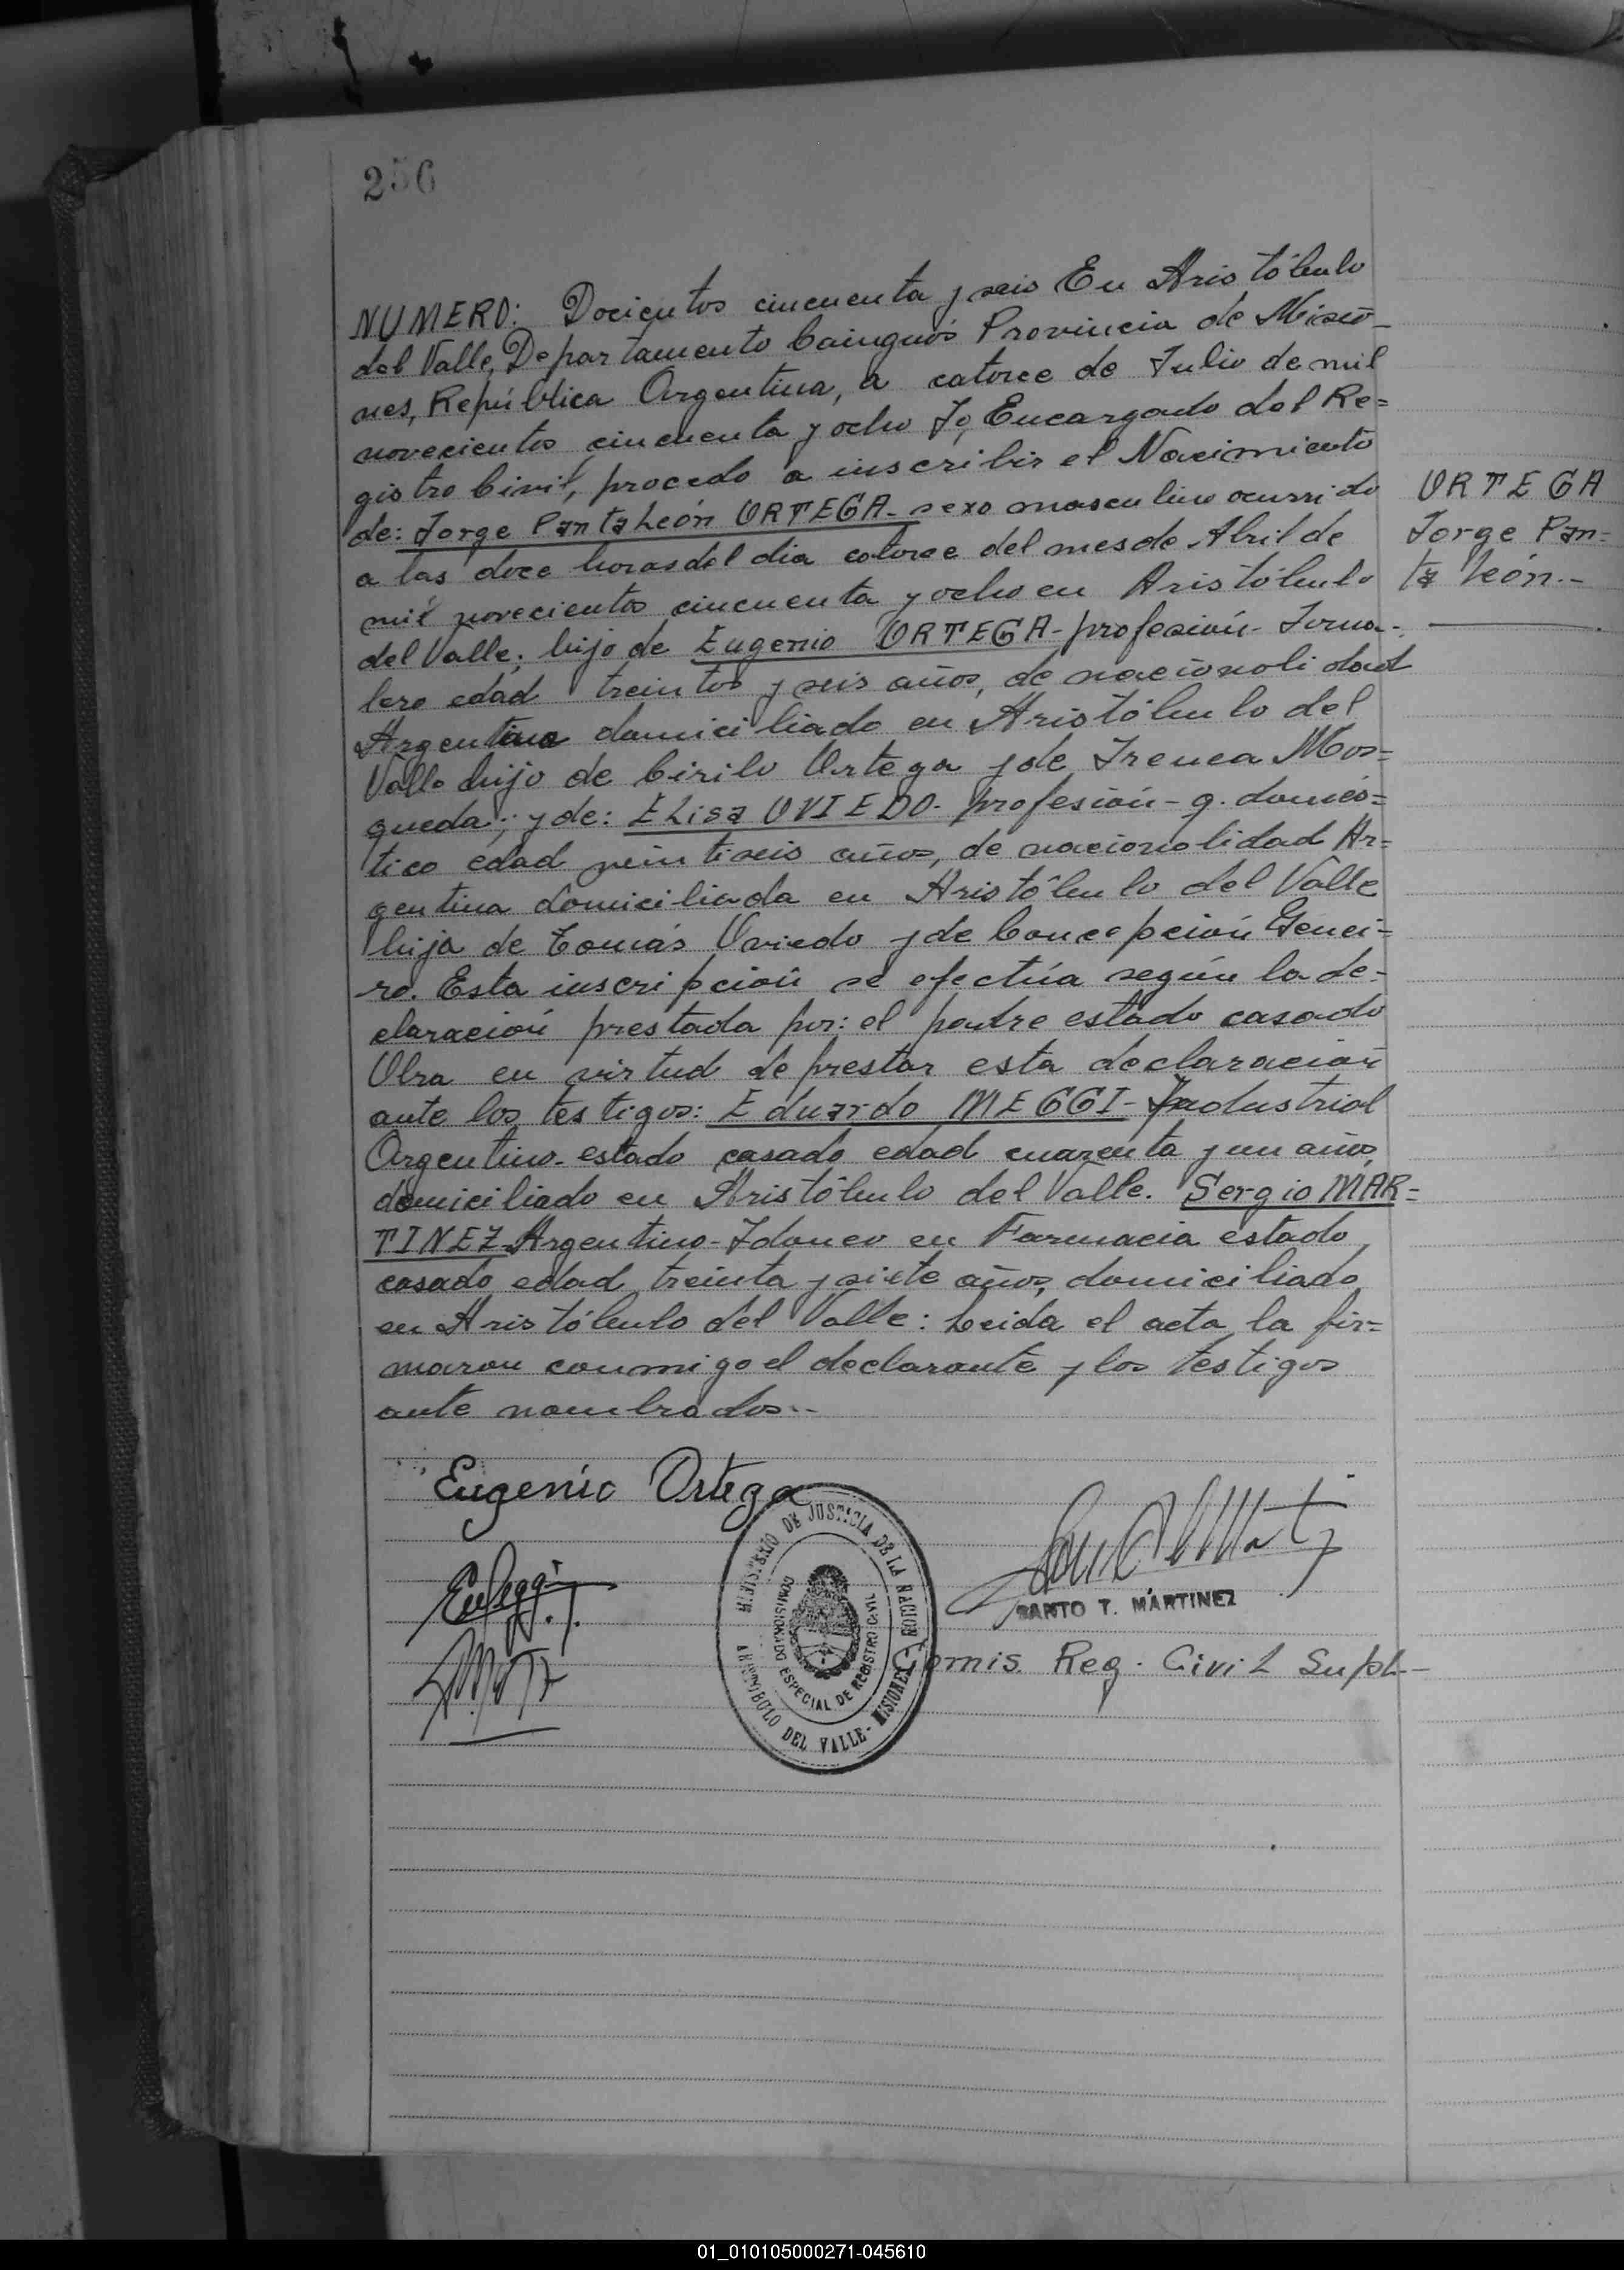 256
NUMERO: Docientos cincuenta y seis En Aristóbulo
del Valle, Departamento Cainguás Provincia de Misio-
nes, República Argentina, a catorce de Julio de mil
novecientos cincuenta y ocho Yo, Encargado del Re=
gistro Civil, procedo a inscribir el Nacimiento
de: Jorge PantaLeón ORTEGA- sexo masculino ocurrido
a las doce horas del dia catorce del mes de Abril de
mil novecientos cincuenta y ocho en Aristóbulo
del Valle; hijo de Eugenio ORTEGA- profesión- Jorna-
lero edad treintos y seis años, de nacionalidad
Argentina domiciliado en Aristóbulo del
Valle hijo de Cirilo Ortega y de Irenea Mos=
queda; y de: ELisa OVIEDO- profesión- q. domés=
tico edad veintiseis años, de nacionalidad Ar=
gentina domiciliada en Aristóbulo del Valle
hija de Tomás Oviedo y de Concepción Genei-
ro. Esta inscripción se efectúa según la de-
claración prestada por: el padre estado casado
Obra en virtud de prestar esta declaración
ante los testigos: Eduardo MEGGI- Industrial
Argentino- estado casado edad cuarenta y un años
domiciliado en Aristóbulo del Valle. Sergio MAR=
TINEZ- Argentino- Idoneo en Farmacia estado
casado edad treinta y siete años, domiciliado
en Aristóbulo del Valle: Leida el acta la fir=
maron conmigo el declarante y los testigos
ante nombrados..-
ORTEGA
Jorge Pan=
ta León.-
Eugenio Ortega
MINISTERIO DE JUSTICIA DE LA NACION
COMISIONADO ESPECIAL DE REGISTRO CIVIL
ARISTOBULO DEL VALLE- MISIONES
SANTO T. MARTINEZ
Comis. Reg. CiviL SupL.-
01_010105000271-045610